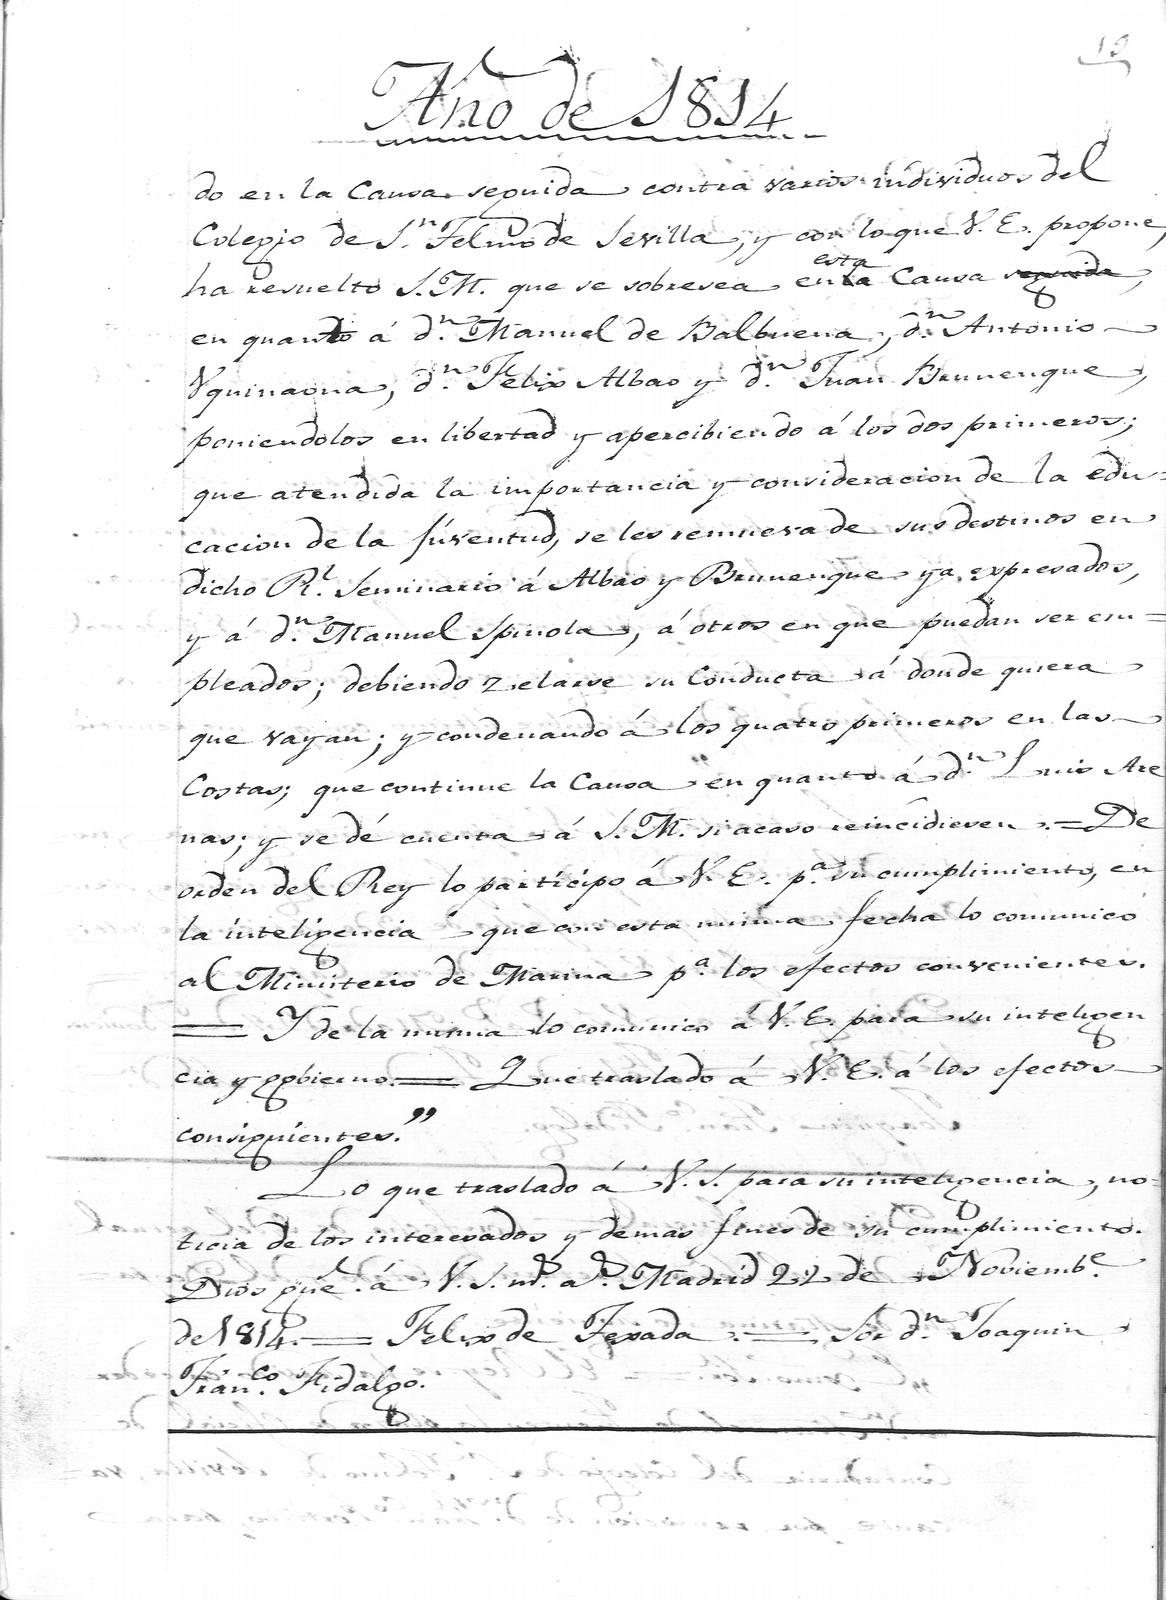 19
Año de 1814
do en la Causa seguida contra varios individuos del
Colegio de S.n Telmo de Sevilla, y con lo que V. E. propone,
ha resuelto S. M. que se sobresea en esta Causa seguida,
en quanto á d.n Manuel de Balbuena, d.n Antonio
Vquinaona, d.n Felix Albao y d.n Juan Brunenque,
poniendolos en libertad y apercibiendo á los dos primeros;
que atendida la importancia y consideracion de la edu=
cacion de la Júventud, se les remueva de sus destinos en
dicho R.l Seminario á Albao y Brunenque ya expresados,
y á d.n Manuel Spinola, á otros en que puedan ser em=
pleados; debiendo zelarse su Conducta á donde quiera
que vayan; y condenando á los quatro primeros en las
Costas; que continue la Causa en quanto á d.n Luis Are
nas; y se dé cuenta á S. M. si acaso reincidiesen. = De
orden del Rey lo participo á V. E. p.a su cumplimiento, en
la inteligencia que con esta misma fecha lo comunico
al Ministerio de Marina p.a los efectos convenientes.
= Y de la misma lo comunico á V. E. para su inteligen
cia y gobierno. = Que traslado á V. E. á los efectos
consiguientes."
Lo que traslado á V. S. para su inteligencia, no=
ticia de los interesados y demas fines de su cumplimiento.
Dios gue. á V. S. m.s a.s Madrid 22 de Noviemb.e
de 1814. = Felix de Texada. = Sor d.n Joaquin
Fran.co Fidalgo.